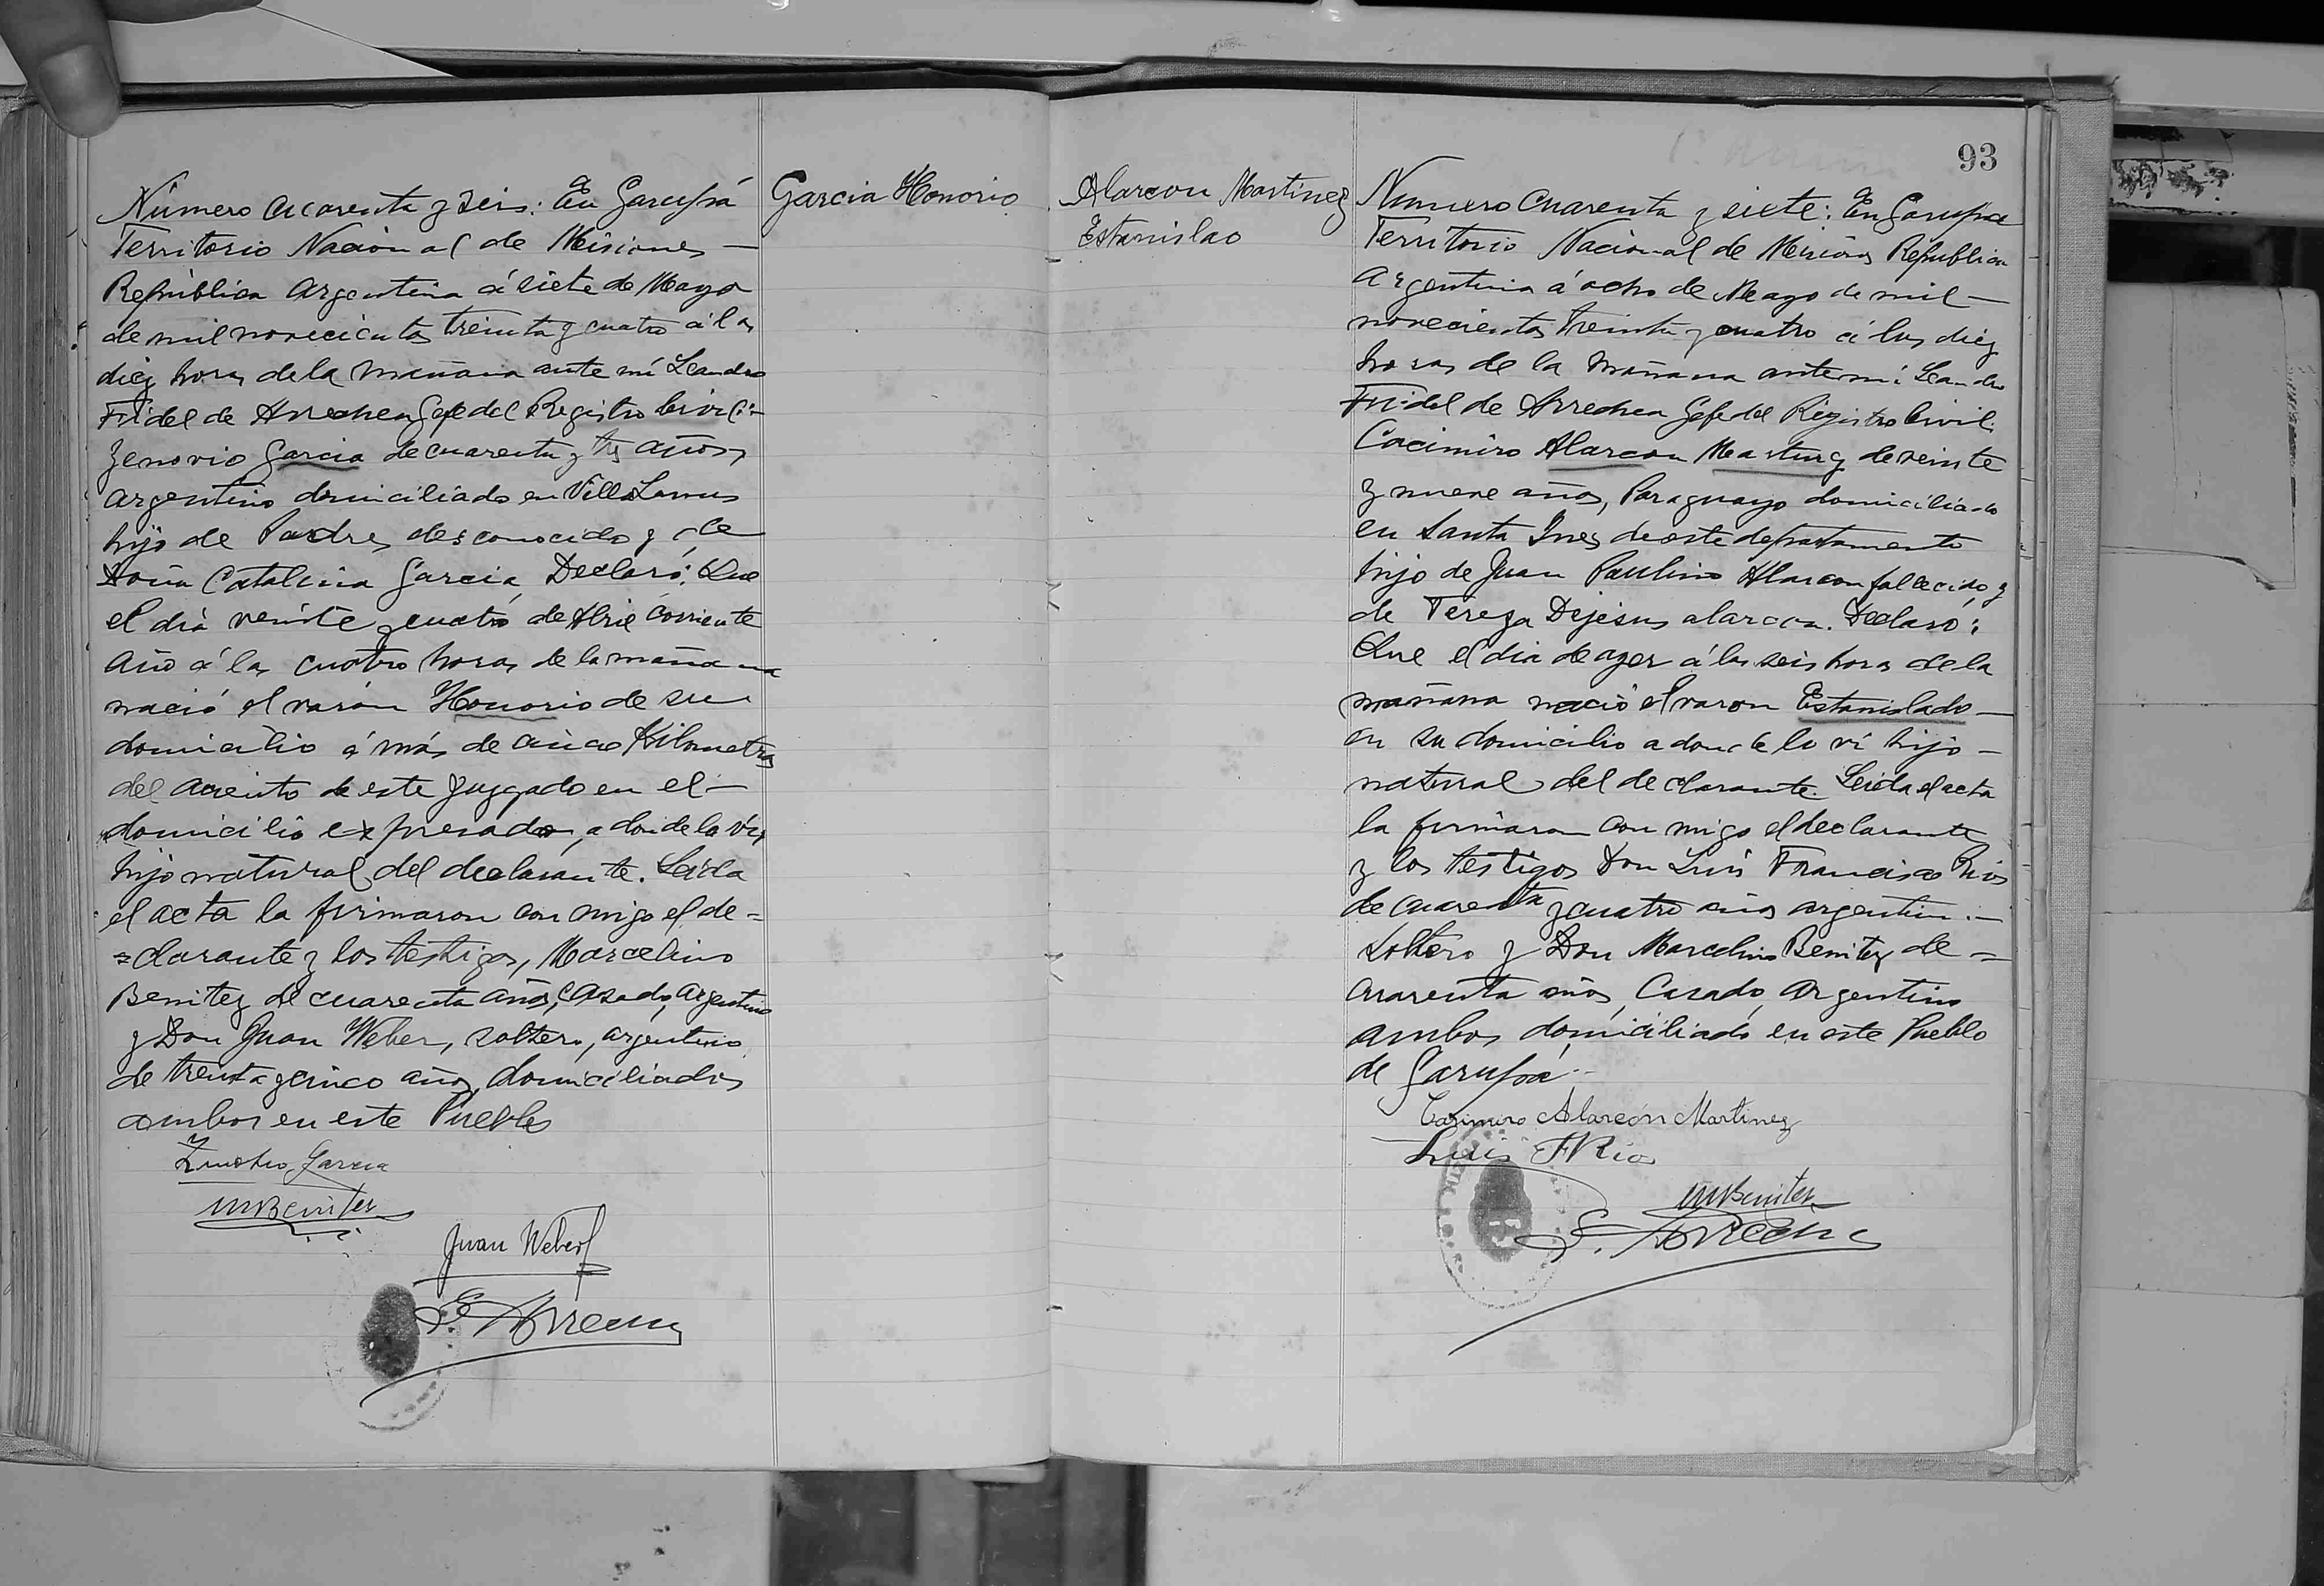 Garcia Honorio
Número cuarenta y seis: En Garupá
Territorio Nacional de Misiones —
República Argentina á siete de Mayo
de mil novecientos treinta y cuatro á las
diez horas de la mañana ante mí Leandro
Fidel de Arrechea Gefe del Registro Civil:
Zenovio Garcia de cuarenta y tres años,
argentino domiciliado en Villa Lanus
hijo de Padres desconocido y de
Doña Catalina Garcia, Declaró: Que
el dia veinte y cuatro de Abril corriente
año á las cuatro horas de la mañana
nació el varón Honorio de su
domicilio á más de cinco Kilometros
del aciento de este Juzgado en el —
domicilio expresado, a donde lo ví,
hijo natural del declarante. Leida
el acta la firmaron con migo el de=
=clarante y los testigos, Marcelino
Benitez de cuarenta años, Casado, argentino
y Don Juan Weber, soltero, argentino
de trenta y cinco años, domiciliados
ambos en este Pueblo
Zenobio Garcia
M Benitez
Juan Weber
Arrechea
93
Alarcon Martinez
Estanislao
Numero Cuarenta y siete: En Garupá
Territorio Nacional de Misiones Republica
Argentina á ocho de Mayo de mil —
novecientos treinta y cuatro á las diez
horas de la mañana ante mí Leandro
Fidel de Arrechea Gefe del Registro Civil:
Cacimiro Alarcon Martinez de veinte
y nueve años, Paraguayo domiciliado
en Santa Ines de este departamento
hijo de Juan Paulino Alarcon fallecido y
de Tereza Dejesus alarcon. Declaró:
Que el dia de ayer á las seis horas de la
mañana nació el varon Estanislado —
en su domicilio a donde lo ví hijo —
natural del declarante. Leida el acta
la firmaron con migo el declarante
y los testigos Don Luis Francisco Rios
de cuarenta y cuatro años argentino —
soltero y Don Marcelino Benitez de =
cuarenta años, Casado, argentino
ambos domiciliado en este Pueblo
de Garupá.—
Casimiro Alarcón Martinez
Luis F Rios
M Benitez
Arrechea